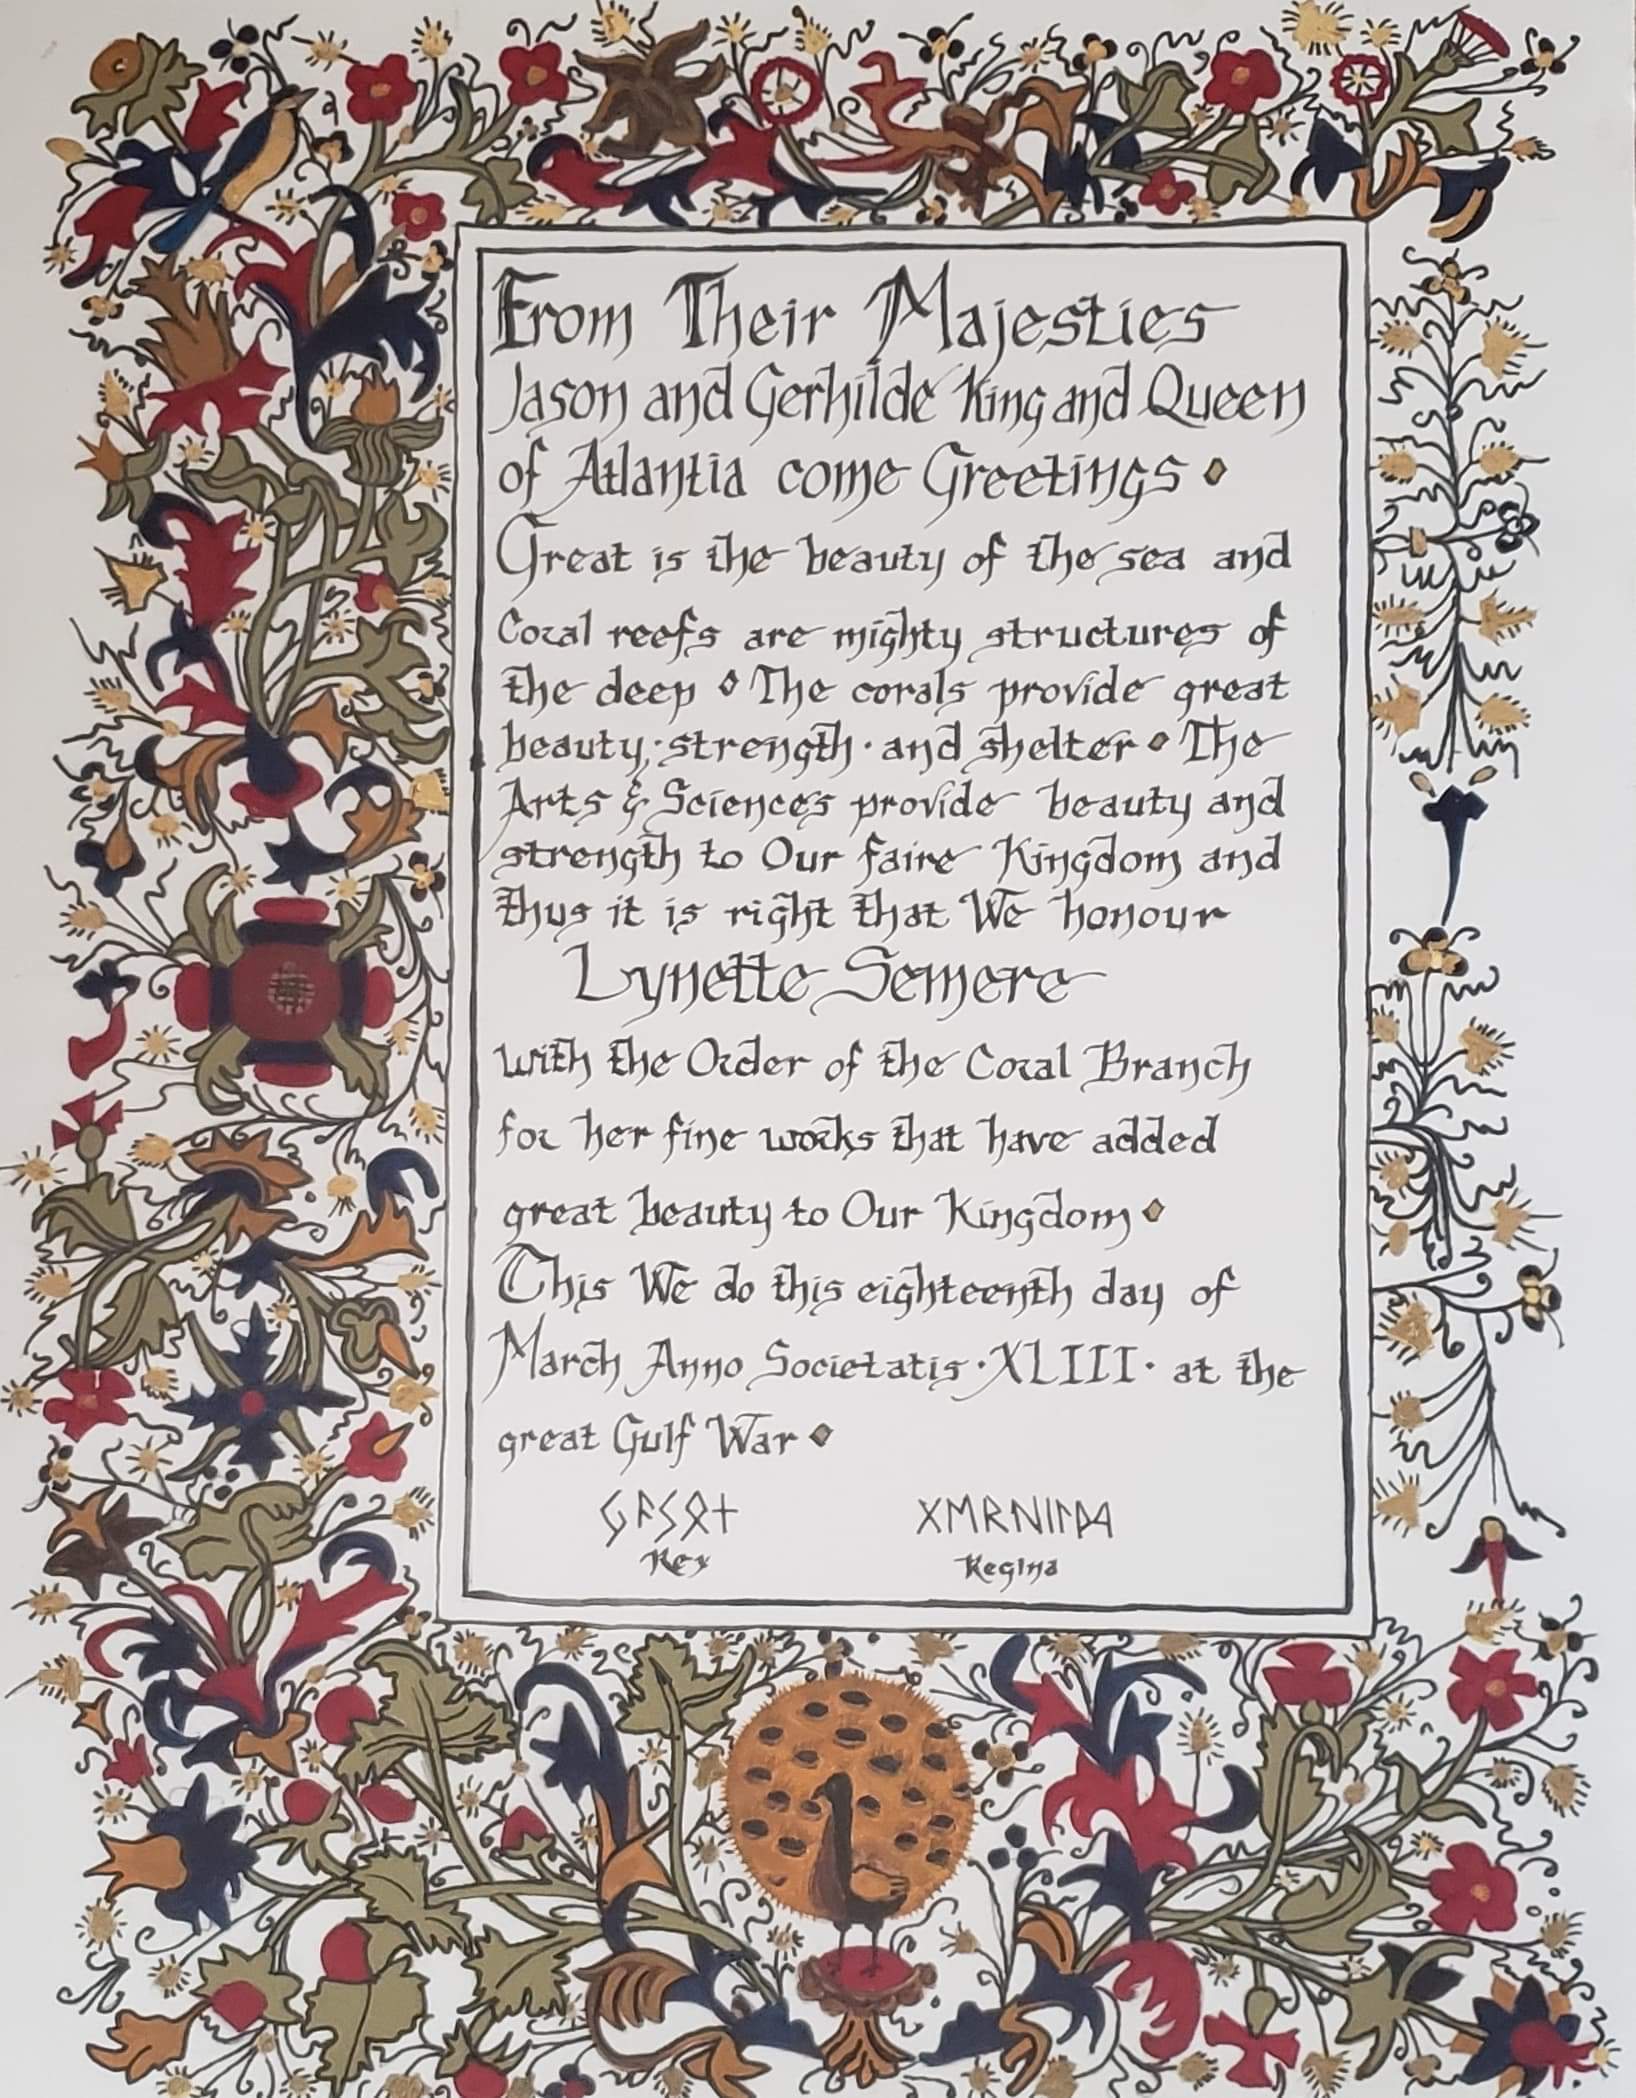 From Their Majesties
Jason and Gerhilde King and Queen
of Atlantia come Greetings ⬥
Great is the beauty of the sea and
Coral reefs are mighty structures of
the deep ⬥ The corals provide great
beauty · strength · and shelter ⬥ The
Arts & Sciences provide beauty and
strength to Our faire Kingdom and
thus it is right that We honour
Lynette Semere
with the Order of the Coral Branch
for her fine works that have added
great beauty to Our Kingdom ⬥
This We do this eighteenth day of
March Anno Societatis · XLIII · at the
great Gulf War ⬥
Rex Regina